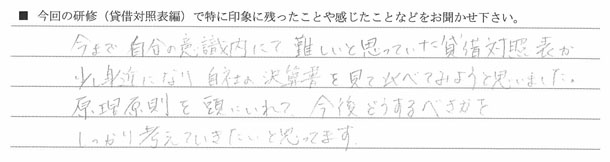 ■ 今回の研修（貸借対照表編）で特に印象に残ったことや感じたことなどをお聞かせ下さい。
今まで自分の意識内にて難しいと思っていた貸借対照表が
少し身近になり自社の決算書を見て比べてみようと思いました。
原理原則を頭にいれて今後どうするべきかを
しっかり考えていきたいと思ってます。